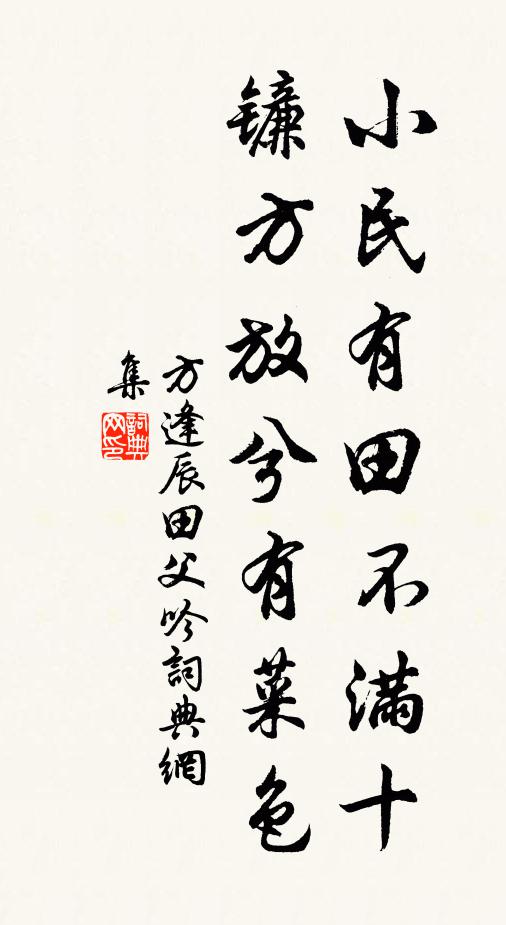 小民有田不滿十
鐮方放兮有菜色
方逢辰田父吟詞典網
集
詞典網印